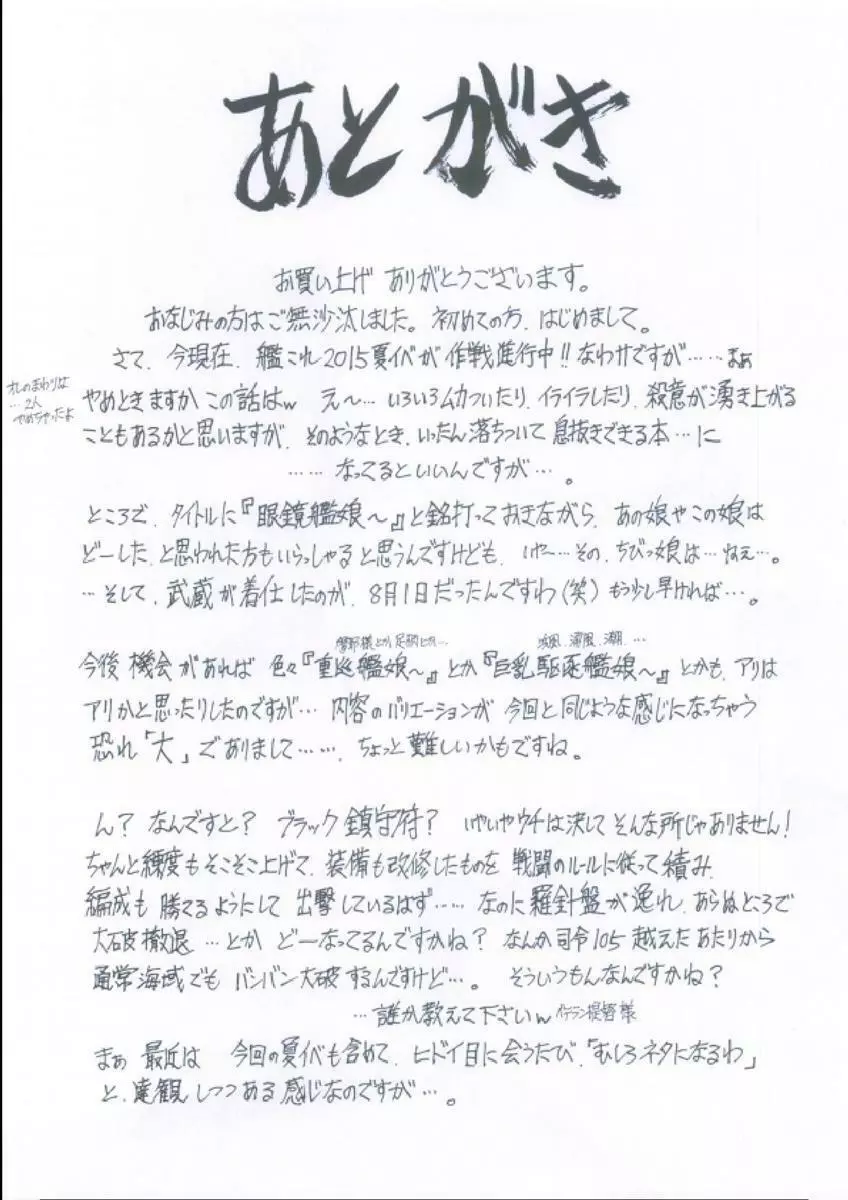 あとがき
お買い上げ ありがとうございます。
おなじみの方はご無沙汰しました。初めての方、はじめまして。
さて、今現在、艦これ2015夏イベが作戦進行中!! なわけですが……まぁ
やめときますか この話はw え〜… いろいろムカついたり、イライラしたり、殺意が湧き上がる
こともあるかと思いますが、そのようなとき、いったん落ちついて息抜きできる本…に
……なってるといいんですが…。
オレのまわりは
…2人
やめちゃったよ
ところで、タイトルに『眼鏡艦娘〜』と銘打っておきながら、あの娘やこの娘は
どーした、と思われた方もいらっしゃると思うんですけども、いやー…その、ちびっ娘は…ねぇ…。
…そして、武蔵が着任したのが、8月1日だったんですわ(笑) もう少し早ければ…。
摩耶様とか足柄とか…
浜風、潮、…
今後 機会があれば 色々『重巡艦娘〜』とか『巨乳駆逐艦娘〜』とかも、アリは
アリかと思ったりしたのですが… 内容のバリエーションが 今回と同じような感じになっちゃう
恐れ「大」でありまして……、ちょっと難しいかもですね。
ん? なんですと? ブラック鎮守府? いやいやウチは決してそんな所じゃありません!
ちゃんと練度もそこそこ上げて、装備も改修したものを 戦闘のルールに従って積み、
編成も 勝てるようにして 出撃しているはず…… なのに羅針盤が逸れ、あらぬところで
大破撤退 …とか どーなってるんですかね? なんか司令105越えたあたりから
通常海域でも バンバン大破するんですけど…。 そういうもんなんですかね?
…誰か教えて下さいw ベテラン提督様
まぁ 最近は 今回の夏イベも含めて、ヒドイ目に会うたび、「むしろネタになるわ」
と、達観しつつある感じなのですが…。